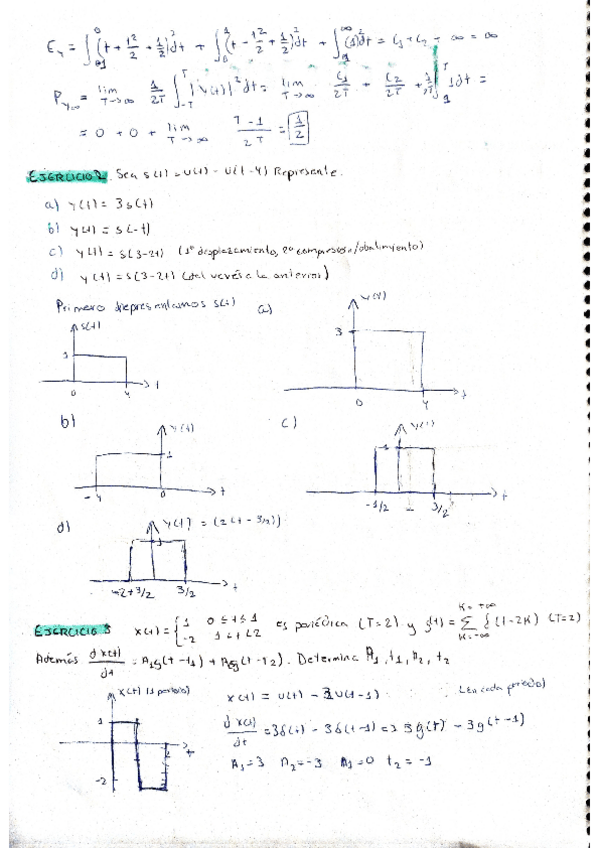 E_y = ∫_{-1}^{0} (t + t²/2 + 1/2)² dt + ∫_{0}^{1} (t - t²/2 + 1/2)² dt + ∫_{1}^{∞} (1)² dt = C₁ + C₂ + ∞ = ∞
P_{y∞} = lim_{T→∞} 1/2T ∫_{-T}^{T} |y(t)|² dt = lim_{T→∞} C₁/2T + C₂/2T + 1/2T ∫_{1}^{T} 1dt =
= 0 + 0 + lim_{T→∞} T-1/2T = 1/2
EJERCICIO 2. Sea s(t) = u(t) - u(t-4) Represente.
a) y(t) = 3s(t)
b) y(t) = s(-t)
c) y(t) = s(3-2t) (1º desplazamiento, 2º compresión/abatimiento)
d) y(t) = s(3-2t) (del revés a la anterior)
Primero representamos s(t)
a)
y(t)
s(t)
3
1
0
4
t
0
4
t
b)
y(t)
1
-4
0
t
c)
y(t)
1
-1/2
3/2
t
d)
y(t) = (2(t-3/2))
-2+3/2
3/2
t
EJERCICIO 3 x(t) = { 1 0≤t≤1 -2 1<t<2 es periódica (T=2) y g(t) = Σ_{K=-∞}^{K=+∞} δ(t-2K) (T=2)
Además dx(t)/dt = A₁g(t-t₁) + A₂g(t-t₂). Determina A₁, t₁, A₂, t₂
x(t) (1 periodo)
1
-2
t
x(t) = u(t) - 3u(t-1) (en cada periodo)
dx(t)/dt = 3δ(t) - 3δ(t-1) = 3g(t) - 3g(t-1)
A₁=3 A₂=-3 A₁=0 t₂=-1